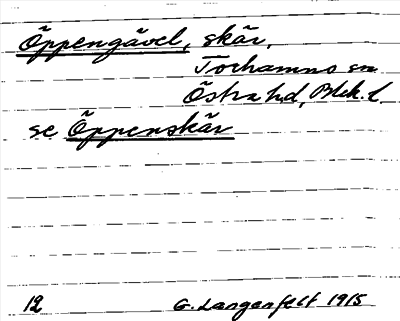 Öppengåvel, skär,
Torhamns sn
Östra hd, Blek. l.
se Öppenskär
12 G. Langenfelt 1915